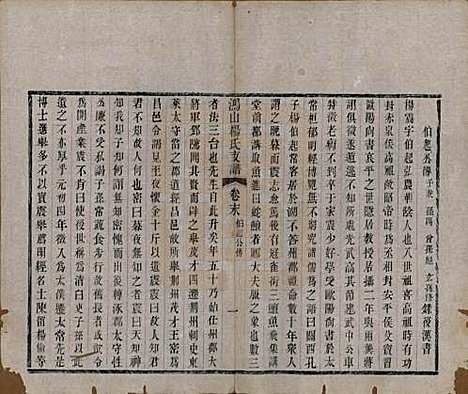 伯起公傳子秉 孫賜 曾孫彪 玄孫修 錄後漢書
楊震字伯起弘農華陰人也八世祖喜高祖時有功
封赤泉侯高祖敞昭帝時為丞相封安平侯父寶習
歐陽尚書哀平之世隱居教授居攝二年與兩龔蔣
詡俱徵遂遁逃不知所處光武高其節建武中公車
特徵老病不到卒於家震少好學受歐陽尚書於太
常桓郁明經博覽無不窮究諸儒為之語曰關西孔
子楊伯起常客居於湖不答州郡禮命數十年眾人
謂之晚暮而震志愈篤後有冠雀銜三鱣魚飛集講
堂前都講取魚進曰蛇鱣者卿大夫服之象也數三
鴻山楊氏支譜 卷末 伯起公傳 一
者法三台也先生自此升矣年五十乃始仕州郡大
將軍鄧騭聞其賢而辟之舉茂才四遷荊州刺史東
萊太守當之郡道經昌邑故所舉荊州茂才王密為
昌邑令謁見至夜懷金十斤以遺震震曰故人知君
君不知故人何也密曰暮夜無知者震曰天知神知
我知子知何謂無知密愧而出後轉涿郡太守性公
廉不受私謁子孫常蔬食步行故舊長者或欲令為
開產業震不肯曰使後世稱為清白吏子孫以此
遺之不亦厚乎元初四年徵入為太僕遷太常先是
博士選舉多不以實震舉薦明經名士陳留楊倫等